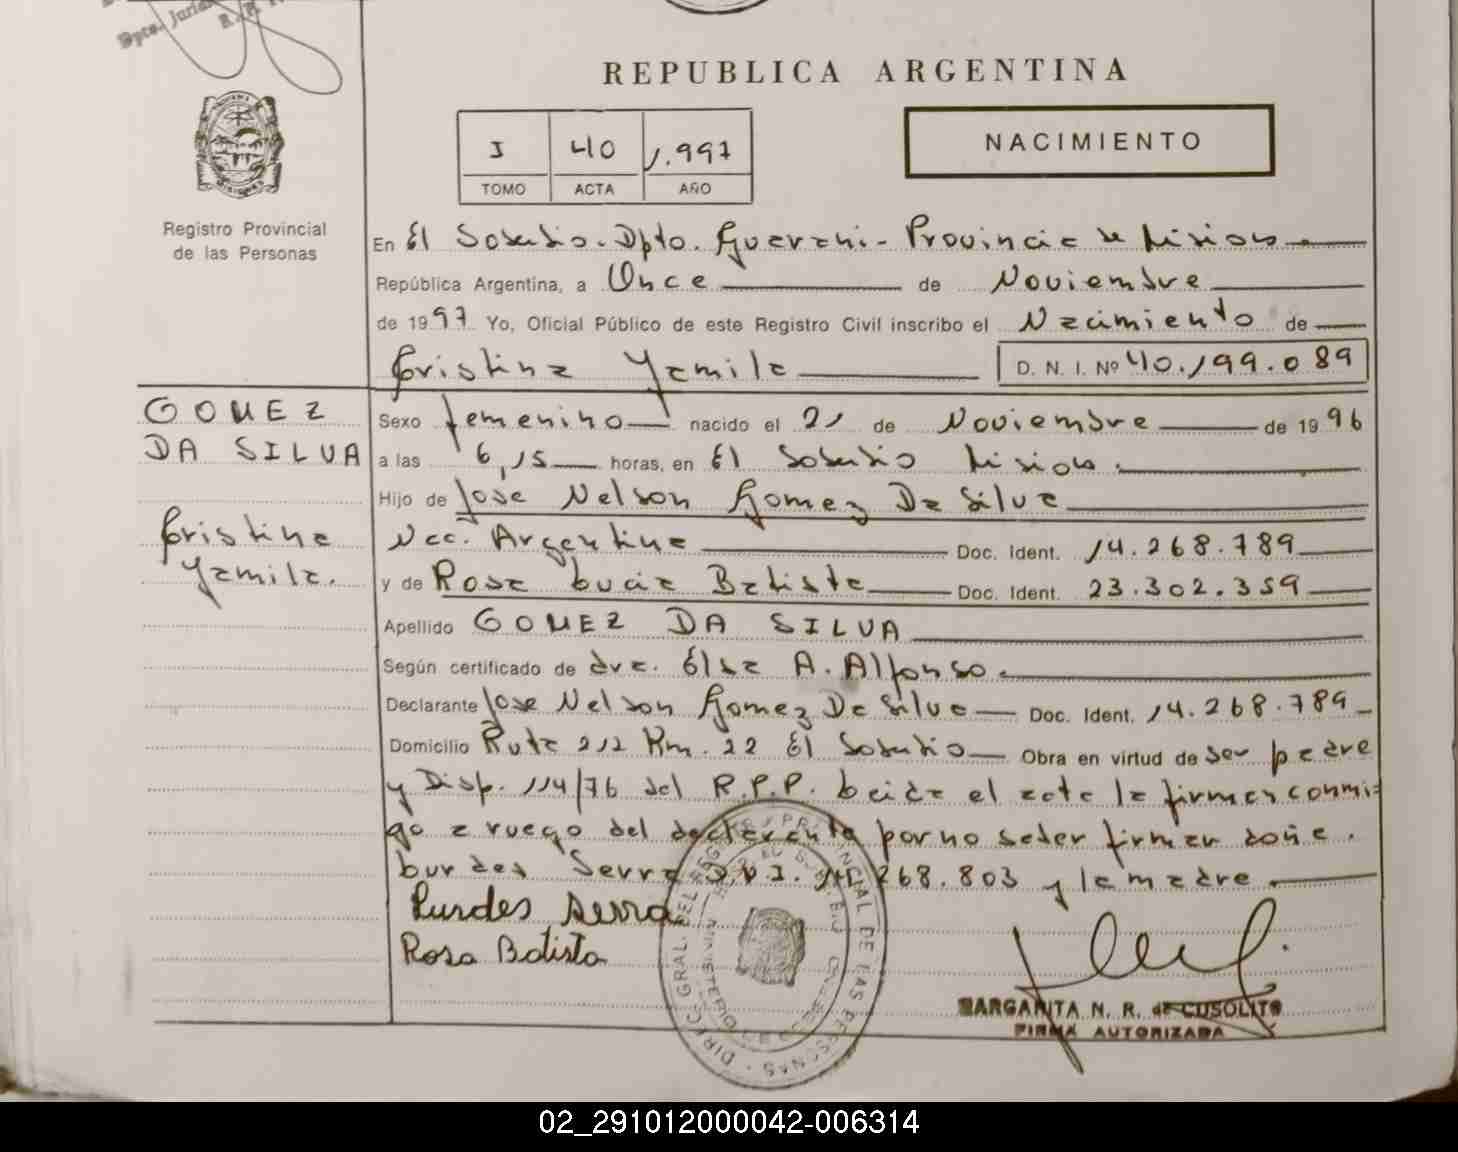 Dpto. Jurid
R. P.
REPUBLICA ARGENTINA
I 40 1.997
TOMO ACTA AÑO
NACIMIENTO
Registro Provincial
de las Personas
En El Soberbio. Dpto. Guarani - Provincia de Misiones
República Argentina, a Once de Noviembre
de 1997 Yo, Oficial Público de este Registro Civil inscribo el Nacimiento de
Cristina Yamila D. N. I. Nº 40.199.089
GOMEZ
DA SILVA
Cristina
Yamila.
Sexo femenino nacido el 21 de Noviembre de 1996
a las 6,15 horas, en El Soberbio Misiones.
Hijo de Jose Nelson Gomez Da Silva
Nac. Argentina Doc. Ident. 14.268.789
y de Rosa Lucia Batista Doc. Ident. 23.302.359
Apellido GOMEZ DA SILVA
Según certificado de dra. Elsa A. Alfonso.
Declarante Jose Nelson Gomez Da Silva Doc. Ident. 14.268.789
Domicilio Ruta 212 Km. 22 El Soberbio Obra en virtud de ser padre
y Disp. 114/76 del R.P.P. Leida el acta la firman conmi=
go a ruego del declarante por no saber firmar doña.
Lurdes Serra D.N.I. 268.803 y la madre.
Lurdes Serra
Rosa Batista
DIREC. GRAL. DEL REGISTRO PROVINCIAL DE LAS PERSONAS
MINISTERIO DE GOBIERNO
MARGARITA N. R. de CUSOLITO
FIRMA AUTORIZADA
02_291012000042-006314